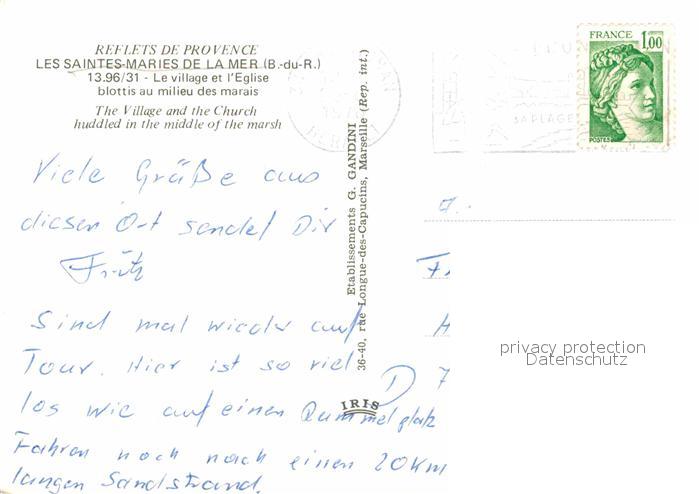 REFLETS DE PROVENCE
LES SAINTES-MARIES DE LA MER (B.-du-R.)
13.96/31 - Le village et l'Eglise
blottis au milieu des marais
The Village and the Church
huddled in the middle of the marsh
Viele Grüße aus
diesen Ort sendet Dir
Fritz
Sind mal wieder auf
Tour. Hier ist so viel
los wie auf einen Rummelplatz
Fahren noch nach einen 20Km
langen Sandstrand.
Etablissements G. GANDINI
36-40, rue Longue-des-Capucins, Marseille (Rep. int.)
IRIS
FRANCE
1,00
POSTES
SA PLAGE
F.
H
D 7
privacy protection
Datenschutz